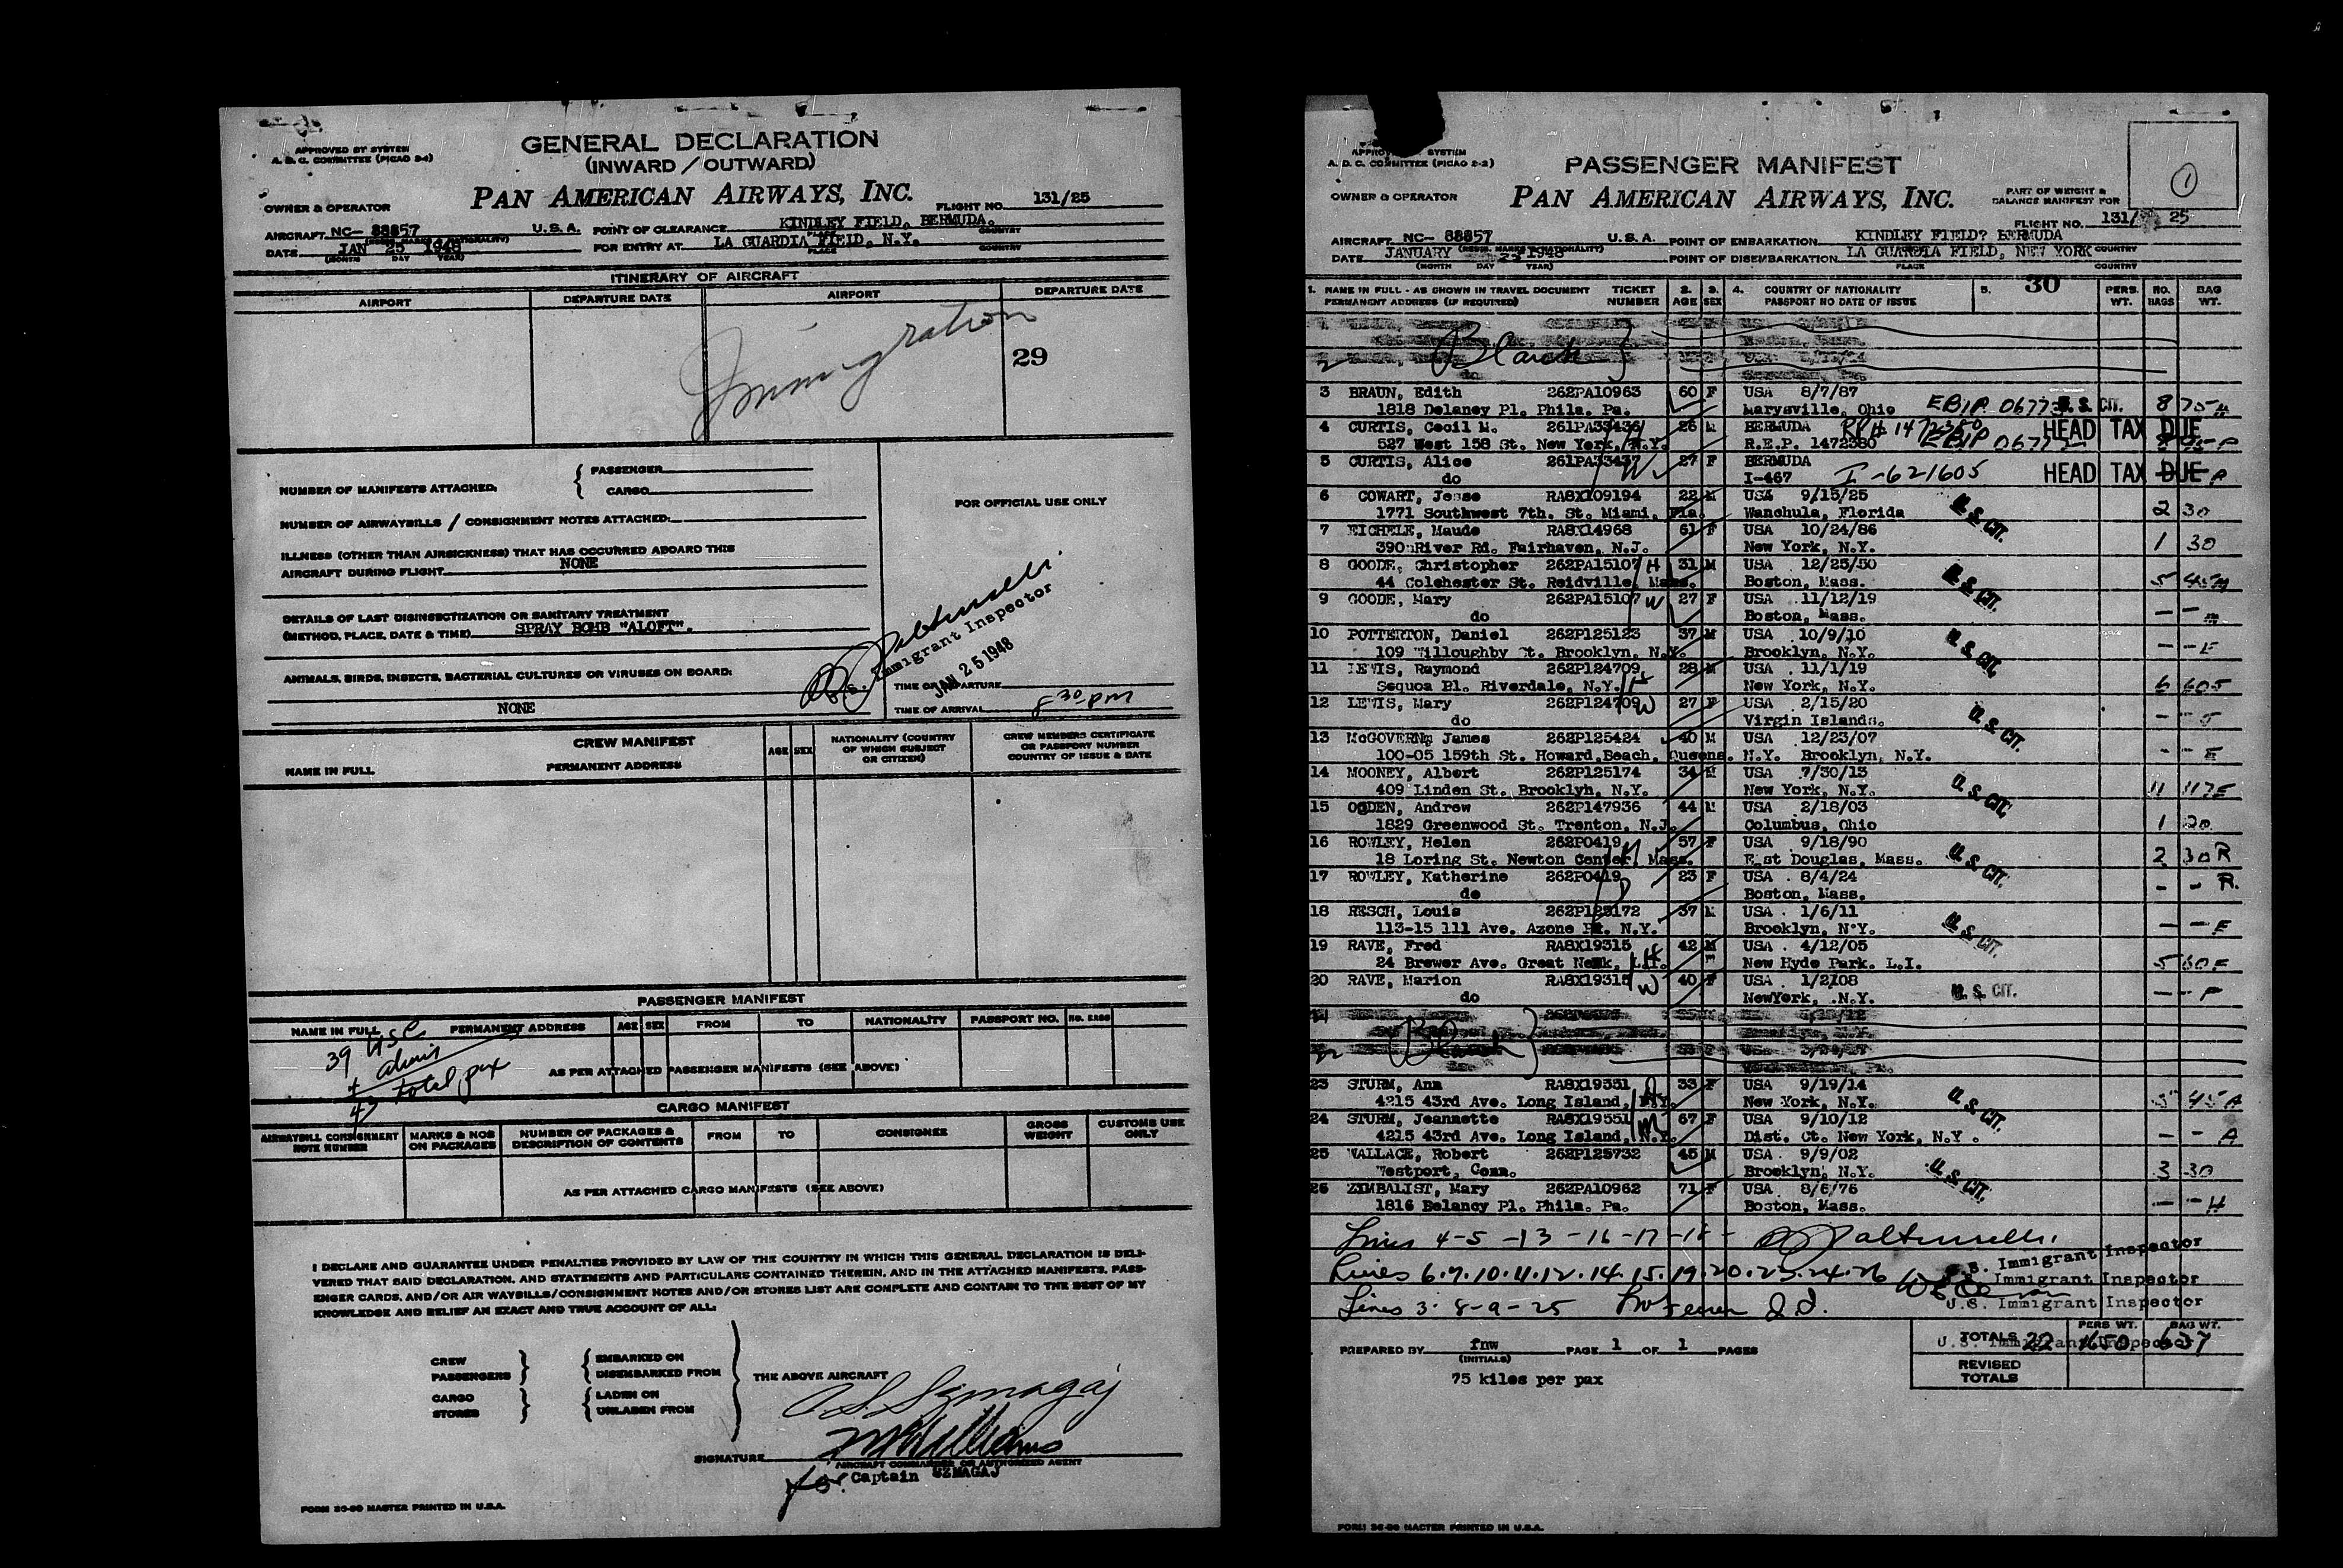 APPROVED BY SYSTEM
A. D. C. COMMITTEE (PICAO 2-1)
GENERAL DECLARATION
(INWARD / OUTWARD)
OWNER & OPERATOR
PAN AMERICAN AIRWAYS, INC.
FLIGHT NO. 131/25
AIRCRAFT NC- 88857 U.S.A. POINT OF CLEARANCE KINDLEY FIELD, BERMUDA.
DATE JAN 25 1948 FOR ENTRY AT LA GUARDIA FIELD, N.Y.
(MONTH DAY YEAR) PLACE COUNTRY
ITINERARY OF AIRCRAFT
AIRPORT DEPARTURE DATE AIRPORT DEPARTURE DATE
Immigration
29
NUMBER OF MANIFESTS ATTACHED: { PASSENGER
CARGO
NUMBER OF AIRWAYBILLS / CONSIGNMENT NOTES ATTACHED:
FOR OFFICIAL USE ONLY
ILLNESS (OTHER THAN AIRSICKNESS) THAT HAS OCCURRED ABOARD THIS
AIRCRAFT DURING FLIGHT NONE
DETAILS OF LAST DISINSECTIZATION OR SANITARY TREATMENT
(METHOD, PLACE, DATE & TIME) SPRAY BOMB "ALOFT".
U.S. Immigrant Inspector
JAN 25 1948
ANIMALS, BIRDS, INSECTS, BACTERIAL CULTURES OR VIRUSES ON BOARD:
NONE
TIME OF DEPARTURE
TIME OF ARRIVAL 8 30 pm
CREW MANIFEST
NAME IN FULL PERMANENT ADDRESS AGE SEX
NATIONALITY (COUNTRY OF WHICH SUBJECT OR CITIZEN)
CREW MEMBERS CERTIFICATE OR PASSPORT NUMBER COUNTRY OF ISSUE & DATE
PASSENGER MANIFEST
NAME IN FULL PERMANENT ADDRESS AGE SEX FROM TO NATIONALITY PASSPORT NO. NO. BAGS
39 USC
4 aliens
43 total pax
AS PER ATTACHED PASSENGER MANIFESTS (SEE ABOVE)
CARGO MANIFEST
AIRWAYBILL CONSIGNMENT NOTE NUMBER
MARKS & NOS ON PACKAGES
NUMBER OF PACKAGES & DESCRIPTION OF CONTENTS
FROM TO CONSIGNEE
GROSS WEIGHT
CUSTOMS USE ONLY
AS PER ATTACHED CARGO MANIFESTS (SEE ABOVE)
I DECLARE AND GUARANTEE UNDER PENALTIES PROVIDED BY LAW OF THE COUNTRY IN WHICH THIS GENERAL DECLARATION IS DELI-
VERED THAT SAID DECLARATION, AND STATEMENTS AND PARTICULARS CONTAINED THEREIN, AND IN THE ATTACHED MANIFESTS, PASS-
ENGER CARDS, AND/OR AIR WAYBILLS/CONSIGNMENT NOTES AND/OR STORES LIST ARE COMPLETE AND CONTAIN TO THE BEST OF MY
KNOWLEDGE AND BELIEF AN EXACT AND TRUE ACCOUNT OF ALL:
CREW
PASSENGERS
EMBARKED ON
DISEMBARKED FROM
THE ABOVE AIRCRAFT
CARGO
STORES
LADEN ON
UNLADEN FROM
SIGNATURE
AIRCRAFT COMMANDER OR AUTHORIZED AGENT
for Captain UZMAGAJ
FORM 30-50 MASTER PRINTED IN U.S.A.
SYSTEM
A. D. C. COMMITTEE (PICAO 2-2)
PASSENGER MANIFEST
1
OWNER & OPERATOR
PAN AMERICAN AIRWAYS, INC.
PART OF WEIGHT &
BALANCE MANIFEST FOR
FLIGHT NO. 131/ 25
AIRCRAFT NC- 88857 U.S.A. POINT OF EMBARKATION KINDLEY FIELD? BERMUDA
DATE JANUARY 25 1948 POINT OF DISEMBARKATION LA GUARDIA FIELD, NEW YORK COUNTRY
(MONTH DAY YEAR) PLACE COUNTRY
1. NAME IN FULL - AS SHOWN IN TRAVEL DOCUMENT TICKET 2. 3. 4. COUNTRY OF NATIONALITY 5. 30 PERS. NO. BAG
PERMANENT ADDRESS (IF REQUIRED) NUMBER AGE SEX PASSPORT NO DATE OF ISSUE WT. BAGS WT.
Blank
3 BRAUN, Edith 262PA10963 60 F USA 8/7/87
1818 Delancy Pl. Phila. Pa. Marysville, Ohio U.S. CIT. 8 75 H
4 CURTIS, Cecil M. 261PA33436 26 M BERMUDA HEAD TAX DUE
527 West 158 St. New York, N.Y. R.E.P. 1472380
5 CURTIS, Alice 261PA33437 W 27 F BERMUDA
do I-467 I-621605 HEAD TAX DUE
6 COWART, Jesse RA8X109194 22 M USA 9/15/25
1771 Southwest 7th. St. Miami, Fla. Wanchula, Florida U.S. CIT. 2 30
7 EICHELE, Maude RA8X14968 61 F USA 10/24/86
390 River Rd. Fairhaven, N.J. New York, N.Y. 1 30
8 GOODE, Christopher 262PA15107 H 31 M USA 12/25/50
44 Colchester St. Reidville, Mass. Boston, Mass. U.S. CIT. 5 45 M
9 GOODE, Mary 262PA15107 W 27 F USA 11/12/19
do Boston, Mass. - - M
10 POTTERTON, Daniel 262P125123 37 M USA 10/9/10
109 Willoughby St. Brooklyn, N.Y. Brooklyn, N.Y. U.S. CIT. - - E
11 LEWIS, Raymond 262P124709 H 28 M USA 11/1/19
Sequoa Pl. Riverdale, N.Y. New York, N.Y. 6 60
12 LEWIS, Mary 262P124709 W 27 F USA 2/15/20
do Virgin Islands. U.S. CIT. - -
13 McGOVERN, James 262P125424 40 M USA 12/23/07
100-05 159th St. Howard Beach, Queens, N.Y. Brooklyn, N.Y. - - E
14 MOONEY, Albert 262P125174 34 M USA 7/30/13
409 Linden St. Brooklyh, N.Y. New York, N.Y. U.S. CIT. 11 117 E
15 OGDEN, Andrew 262P147936 44 M USA 2/18/03
1829 Greenwood St. Trenton, N.J. Columbus, Ohio 1 20
16 ROWLEY, Helen 262P0419 57 F USA 9/18/90
18 Loring St. Newton Center, Mass. E st Douglas, Mass. U.S. CIT. 2 30 R
17 ROWLEY, Katherine 262P0419 D 23 F USA 8/4/24
de Boston, Mass. - - R.
18 RESCH, Louis 262P125172 37 M USA 1/6/11
113-15 111 Ave. Azone Pk. N.Y. Brooklyn, N.Y. U.S. CIT. - - E
19 RAVE, Fred RA8X19315 H 42 M USA 4/12/05
24 Brewer Ave. Great Neck, L.I. New Hyde Park. L.I. 5 60 F
20 RAVE, Marion RA8X19315 W 40 F USA 1/2/08
do NewYork, .N.Y. U.S. CIT. - - F
Blank
23 STURM, Ann RA8X19551 33 F USA 9/19/14
4215 43rd Ave. Long Island, N.Y. New York, N.Y. U.S. CIT. 5 45 A
24 STURM, Jeannette RA8X19551 M 67 F USA 9/10/12
4215 43rd Ave. Long Island, N.Y. Dist. Ct. New York, N.Y. - - A
25 WALLACE, Robert 262P125732 45 M USA 9/9/02
Westport, Conn. Brooklyn, N.Y. U.S. CIT. 3 30
26 ZIMBALIST, Mary 262PA10962 71 F USA 8/6/76
1816 Delancy Pl. Phila. Pa. Boston, Mass. - - H
Lines 4-5-13-16-17-18-
U.S. Immigrant Inspector
Lines 6.7.10.11.12.14.15.19.20.23.24.26
Immigrant Inspector
Lines 3-8-9-25
U.S. Immigrant Inspector
PREPARED BY fnw PAGE 1 OF 1 PAGES
(INITIALS)
75 kilos per pax
PERS WT. BAG WT.
TOTALS 22 1650 637
U.S. Immigrant Inspector
REVISED
TOTALS
FORM 36-50 MASTER PRINTED IN U.S.A.